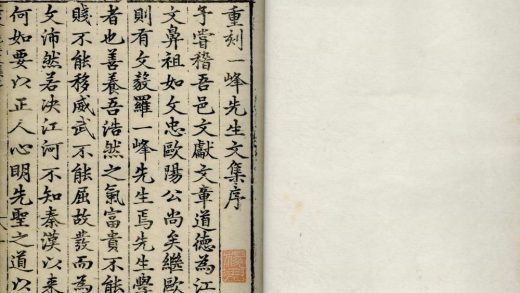 重刻一峰先生文集序
予嘗稽吾邑文獻文章道德為江
文鼻祖如文忠歐陽公尚矣繼歐
則有文毅羅一峰先生焉先生學
者也善養吾浩然之氣富貴不能
賤不能移威武不能屈故發而為
文沛然若决江河不知秦漢以來
何如要以正人心明先聖之道以